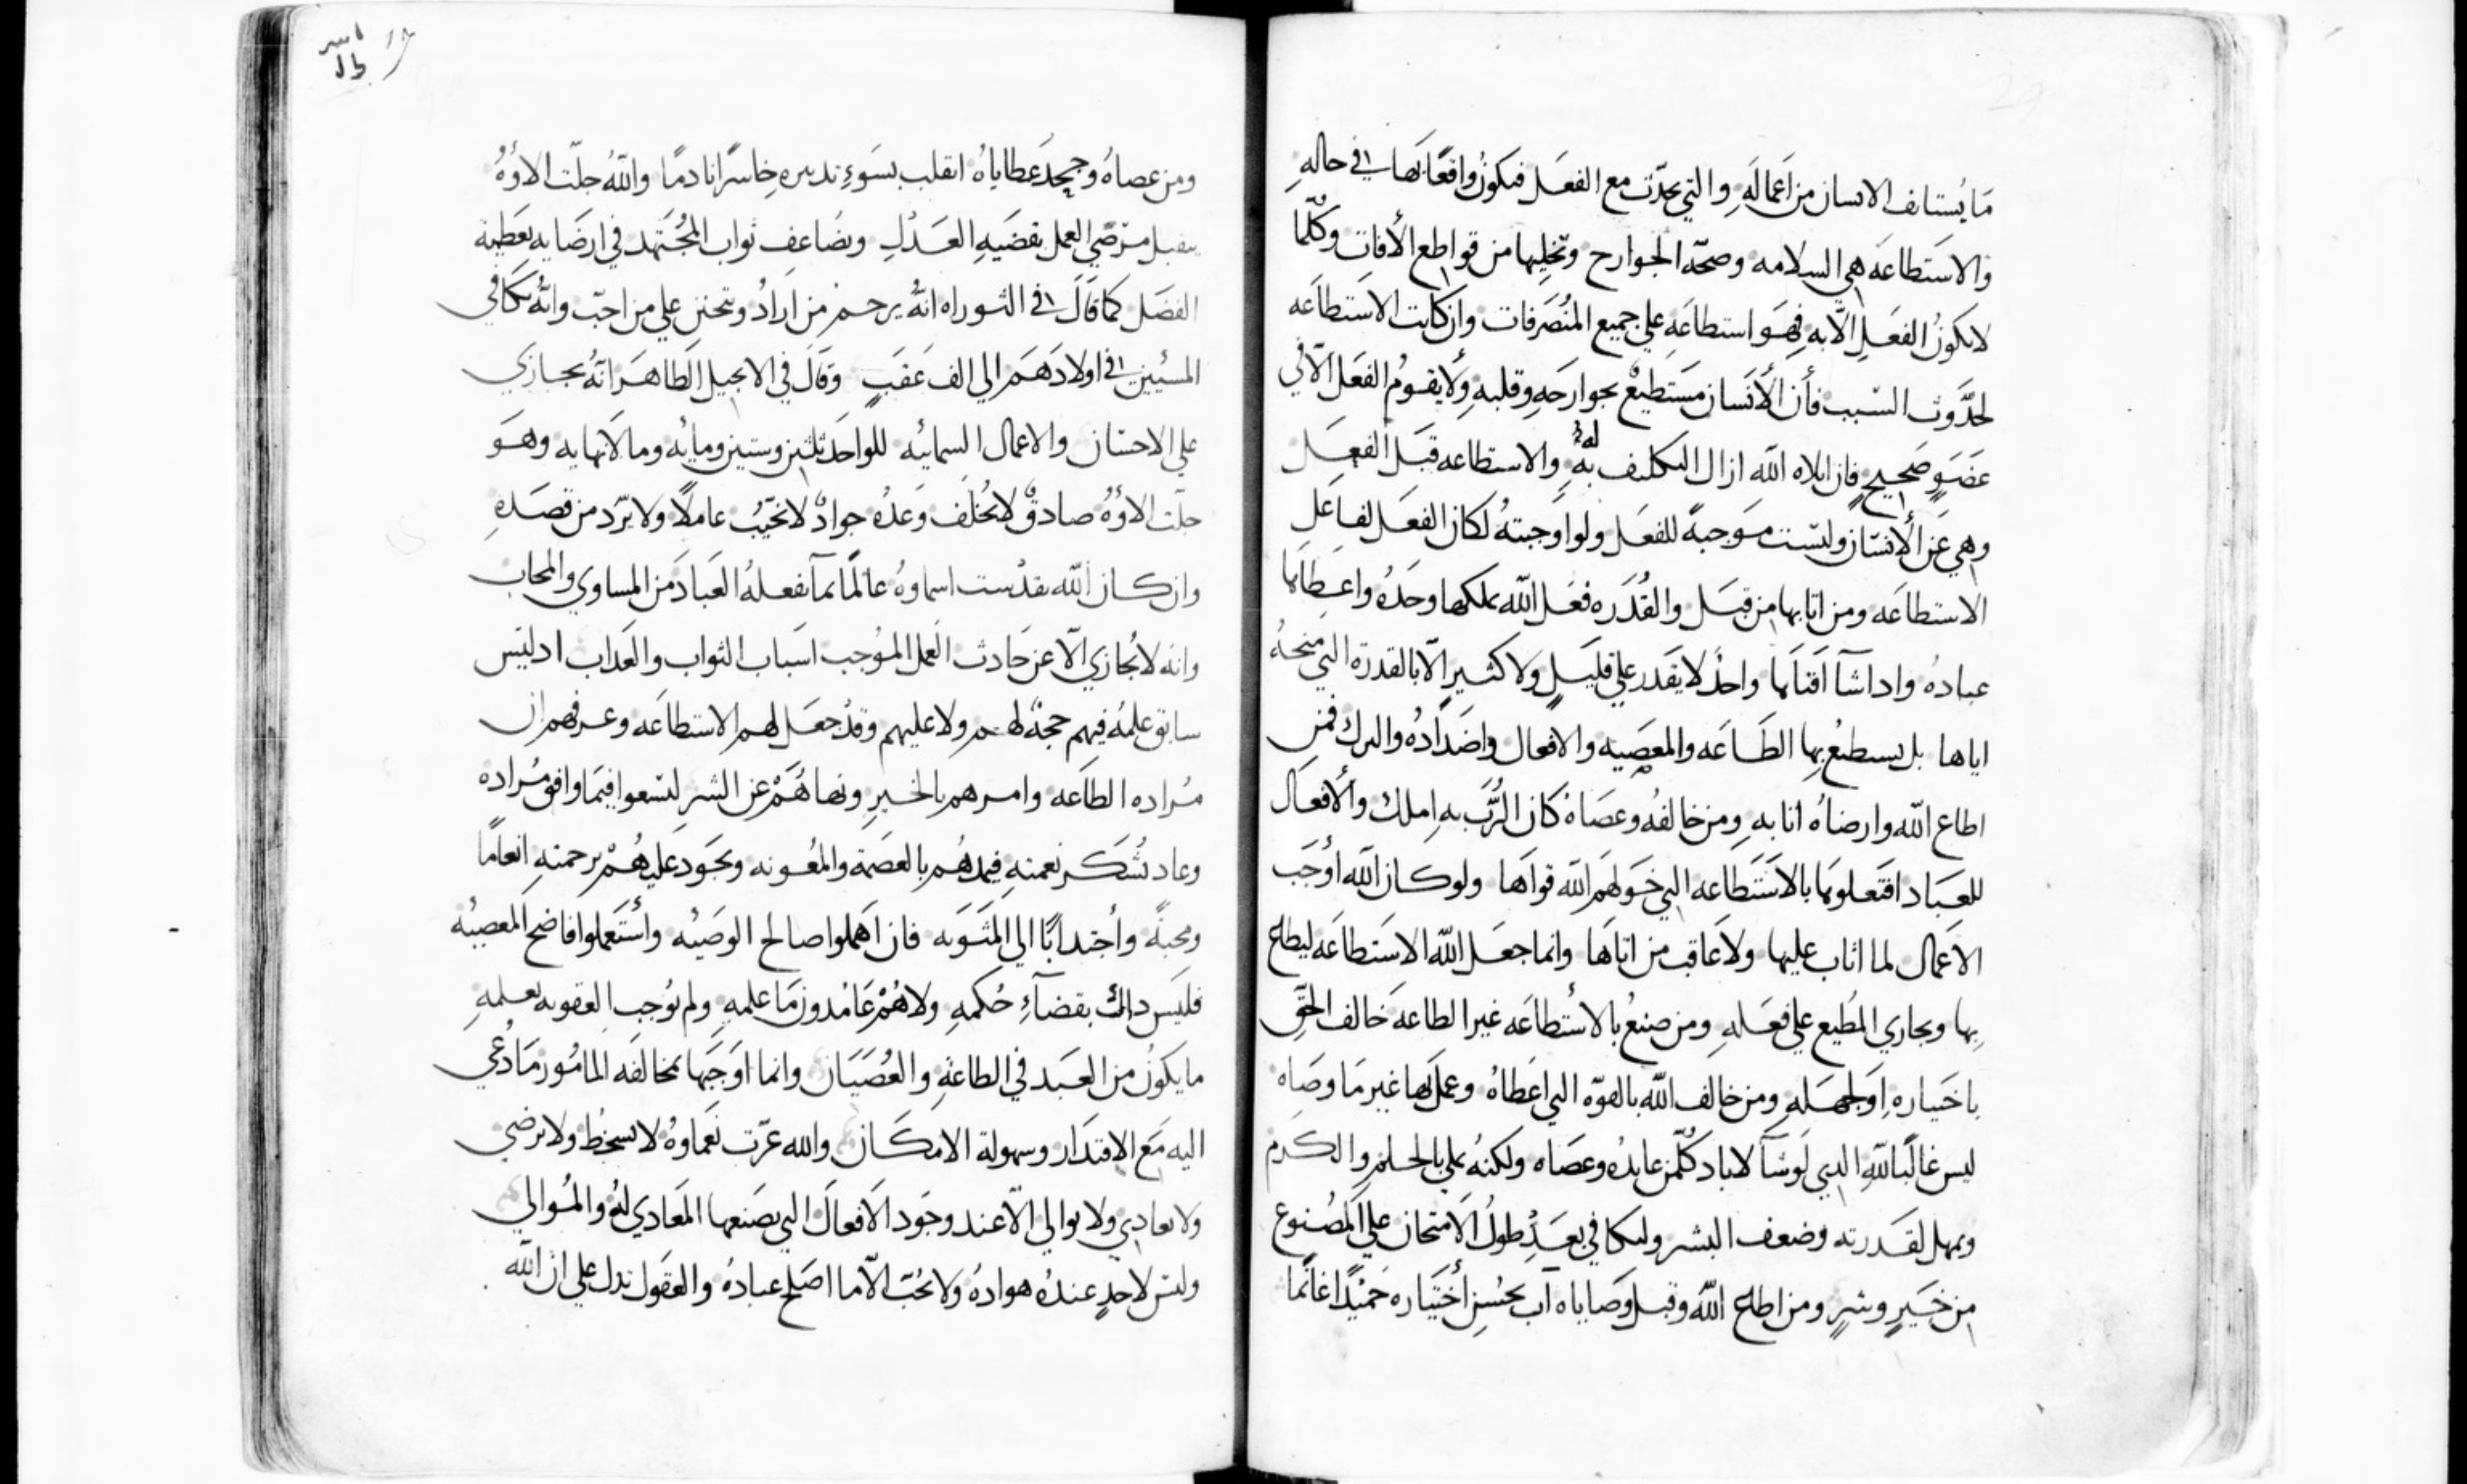 ما يستانف الانسان من اعماله والتي تحدث مع الفعل فيكون واقعًا بها في حاله
والاستطاعه هي السلامه وصحّة الجوارح وتخليها من قواطع الأفات وكلّما
لا يكون الفعل الّا به فهو استطاعه علي جميع المنصرفات وان كانت الاستطاعه
لحدوث السبب فأن الأنسان مستطيعٌ بجوارحه وقلبه ولا يقوم الفعل الّا في
عضوٍ صحيحٍ فان ابلاه الله ازال التكليف به له والاستطاعه قبل الفعل
وهي عن الأنسان وليست موجبةً للفعل ولو اوجبته لكان الفعل لفاعل
الاستطاعه ومن اتا بها من قبل والقدره فعل الله يملكها وحده واعطاها
عباده واداشآ افناها واحدٌ لا يقدر علي قليلٍ ولا كثيرٍ الّا بالقدرة التي منحهُ
اياها بل يستطيع بها الطاعه والمعصيه والافعال واضدادهُ والترك فمن
اطاع الله وارضاهُ اثابه ومن خالفهُ وعصاهُ كان الرّب به املك والأفعال
للعباد افتعلوها بالاستطاعه التي خولهم الله قواها ولو كان الله أوجب
الاعمال لما اثاب عليها ولا عاقب من اتاها وانما جعل الله الاستطاعه ليطاع
بها ويجازي المطيع علي فعله ومن صنع بالأستطاعه غير الطاعه خالف الحقّ
باختياره اولجهله ومن خالف الله بالقوّه التي اعطاهُ وعمل بها غير ما وصاه
ليس غالبًا لله الدي لو شآ لاباد كلّمن عانده وعصاه ولكنه يملي بالحلم والكرم
ويمهل لقدرته وضعف البشر وليكافي بعد طول الامتحان علي المصنوع
من خيرٍ وشرٍ ومن اطاع الله وقبل وصاياه آب بحسن أختياره حميدًا غانمًا
ومن عصاهُ وجحد عطاياهُ انقلب بسوءِ تدبيره خاسرًا نادمًا واللّهُ جلّت الاؤهُ
يقبل مرضي العمل بقضيه العدل ويضاعف ثواب المجتهد في ارضايه بعطية
الفضل كما قال في التوراه انهُ يرحم من ارادُ ويتحنن علي من احبّ وانّهُ يكافي
المسيئين في اولادهم الي الف عقبٍ وقال في الانجيل الطاهر انّهُ يجازي
علي الاحسان والاعمال السمائيه للواحد ثلثين وستين ومايه وما لانهايه وهو
جلّت الاؤهُ صادقٌ لا يخلف وعدهُ جوادٌ لا يخيّبُ عاملًا ولا يرّد من قصده
وان كان الله تقدّست اسماوهُ عالمًا بما يفعلهُ العباد من المساوي والمحاب
وانه لا يُجازي الّا عن حادث العمل الموجب اسباب الثواب والعداب ادليس
سابق علمهُ فيهم حجةٌ لهم ولا عليهم وقد جعل لهم الاستطاعه وعرفهم ان
مراده الطاعه وامرهم بالخير ونهاهُم عن الشر ليسعوا فيما وافق مُراده
وعاد بشكر نعمته فيمدهُم بالعصمة والمعونه ويجود عليهُم برحمته انعامًا
ومحبةً وأجتدابًا الي المثوبه فان اهملوا صالح الوصيّه وأستعملوا فاضح المعصيّه
فليس دالك بقضآءِ حُكمهِ ولا هُم عامدون ما علمه ولم يوجب العقوبه بعلمهِ
ما يكونُ من العبد في الطاعة والعصيان وانما اوجبها بمخالفه المامور ما دُعي
اليه مع الاقتدار وسهولة الامكان والله عزّت نعماوهُ لا يسخط ولا يرضي
ولا يعادي ولا يوالي الّا عند وجود الافعال التي يصنعها المعادي لهُ والمُوالي
وليس لاحدٍ عنده هوادهُ ولا يحبّ الّا ما اصلح عبادهُ والعقول تدل علي ان الله